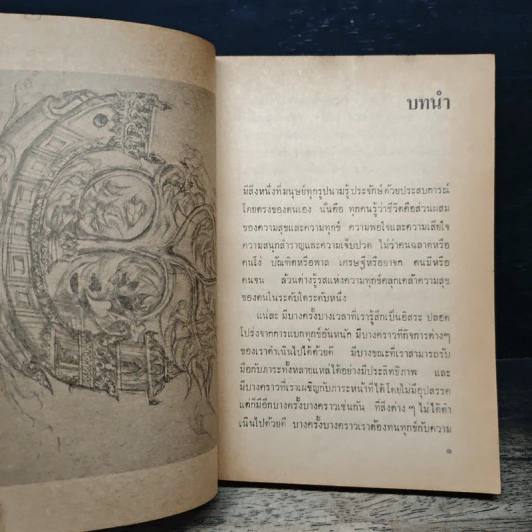 บทนำ
มีสิ่งหนึ่งที่มนุษย์ทุกรูปนามรู้ประจักษ์ด้วยประสบการณ์
โดยตรงของตนเอง นั่นคือ ทุกคนรู้ว่าชีวิตคือส่วนผสม
ของความสุขและความทุกข์ ความพอใจและความเสียใจ
ความสนุกสำราญและความเจ็บปวด ไม่ว่าคนฉลาดหรือ
คนโง่ บัณฑิตหรือพาล เศรษฐีหรือยาจก คนมีหรือ
คนจน ล้วนต่างรู้รสแห่งความทุกข์คลุกเคล้าความสุข
ของตนในระดับใดระดับหนึ่ง
แน่ละ มีบางครั้งบางเวลาที่เรารู้สึกเป็นอิสระ ปลอด
โปร่งจากการแบกทุกข์อันหนัก มีบางคราวที่กิจการต่างๆ
ของเราดำเนินไปได้ด้วยดี มีบางขณะที่เราสามารถรับ
มือกับภาระทั้งหลายแหล่ได้อย่างมีประสิทธิภาพ และ
มีบางคราวที่เราเผชิญกับภาระหน้าที่ได้โดยไม่มีอุปสรรค
แต่ก็มีอีกบางครั้งบางคราวเช่นกัน ที่สิ่งต่างๆ ไม่ได้ดำ
เนินไปด้วยดี บางครั้งบางคราวเราต้องทนทุกข์กับความ
๑